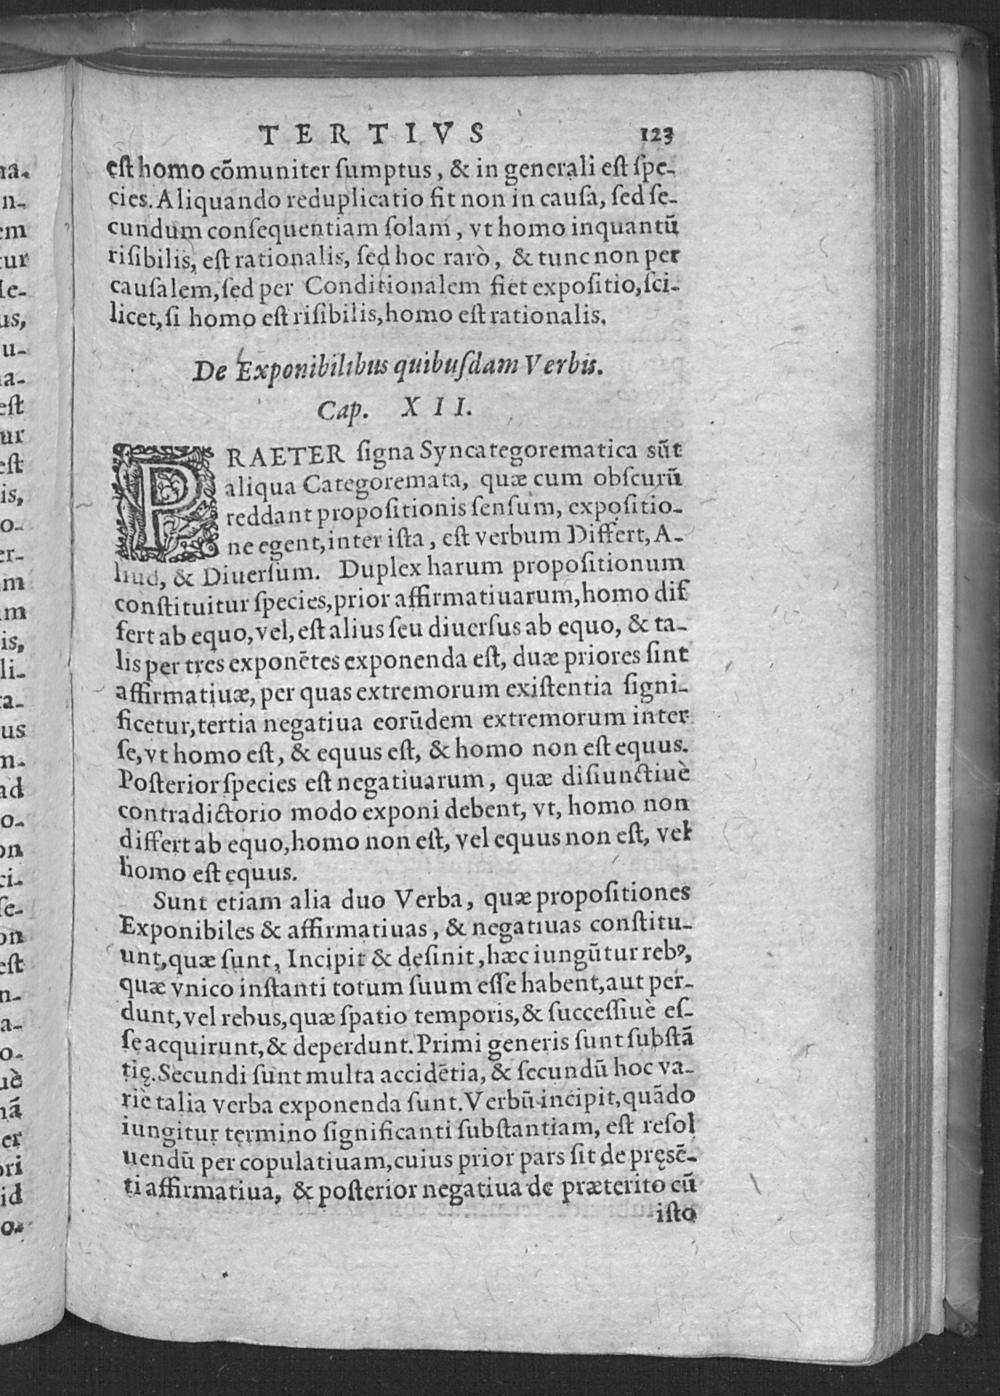 TERTIVS 123
eſt homo cõmuniter ſumptus, & in generali eſt ſpe-
cies. Aliquando reduplicatio fit non in cauſa, ſed ſe-
cundum conſequentiam ſolam, vt homo inquantũ
riſibilis, eſt rationalis, ſed hoc rarò, & tunc non per
cauſalem, ſed per Conditionalem fiet expoſitio, ſci-
licet, ſi homo eſt riſibilis, homo eſt rationalis.
De Exponibilibus quibuſdam Verbis.
Cap. XII.
PRAETER ſigna Syncategorematica sũt
aliqua Categoremata, quæ cum obſcurũ
reddant propoſitionis ſenſum, expoſitio-
ne egent, inter iſta, eſt verbum Differt, A-
liud, & Diuerſum. Duplex harum propoſitionum
conſtituitur ſpecies, prior affirmatiuarum, homo dif
fert ab equo, vel, eſt alius ſeu diuerſus ab equo, & ta-
lis per tres exponẽtes exponenda eſt, duæ priores ſint
affirmatiuæ, per quas extremorum exiſtentia ſigni-
ficetur, tertia negatiua eorũdem extremorum inter
ſe, vt homo eſt, & equus eſt, & homo non eſt equus.
Poſterior ſpecies eſt negatiuarum, quæ diſiunctiuè
contradictorio modo exponi debent, vt, homo non
differt ab equo, homo non eſt, vel equus non eſt, vel
homo eſt equus.
Sunt etiam alia duo Verba, quæ propoſitiones
Exponibiles & affirmatiuas, & negatiuas conſtitu-
unt, quæ ſunt, Incipit & deſinit, hæc iungũtur rebꝰ,
quæ vnico inſtanti totum ſuum eſſe habent, aut per-
dunt, vel rebus, quæ ſpatio temporis, & ſucceſſiuè eſ-
ſe acquirunt, & deperdunt. Primi generis ſunt ſubſtã
tię. Secundi ſunt multa accidẽtia, & ſecundũ hoc va-
riè talia verba exponenda ſunt. Verbũ incipit, quãdo
iungitur termino ſignificanti ſubſtantiam, eſt reſol
uendũ per copulatiuam, cuius prior pars ſit de pręsẽ-
ti affirmatiua, & poſterior negatiua de præterito cũ
iſto